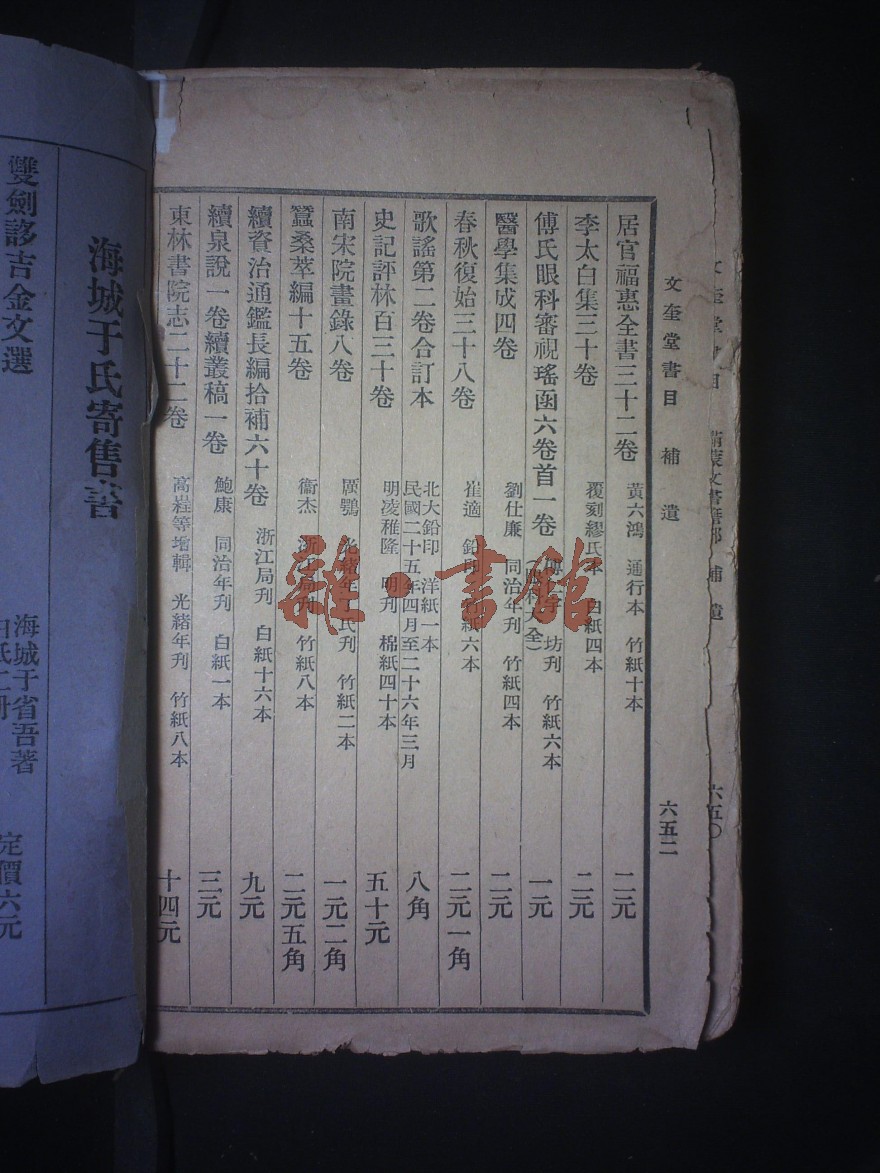 文奎堂書目 補遺 六五二
居官福惠全書三十二卷 黃六鴻 通行本 竹紙十本 二元
李太白集三十卷 覆刻繆氏本 白紙四本 二元
傅氏眼科審視瑤函六卷首一卷 坊刊 竹紙六本 一元
醫學集成四卷 劉仕廉 同治年刊 竹紙四本 二元
春秋復始三十八卷 崔適 鉛印 竹紙六本 二元一角
歌謠第二卷合訂本 北大鉛印 洋紙一本 民國二十五年四月至二十六年三月 八角
史記評林百三十卷 明凌稚隆 明刊 棉紙四十本 五十元
南宋院畫錄八卷 厲鶚 竹紙二本 一元二角
蠶桑萃編十五卷 衞杰 浙江局刊 竹紙八本 二元五角
續資治通鑑長編拾補六十卷 浙江局刊 白紙十六本 九元
續泉說一卷續叢稿一卷 鮑康 同治年刊 白紙一本 三元
東林書院志二十二卷 高𡹴等增輯 光緒年刊 竹紙八本 十四元
海城于氏寄售書
雙劍誃吉金文選 海城于省吾著 定價六元
雜·書館